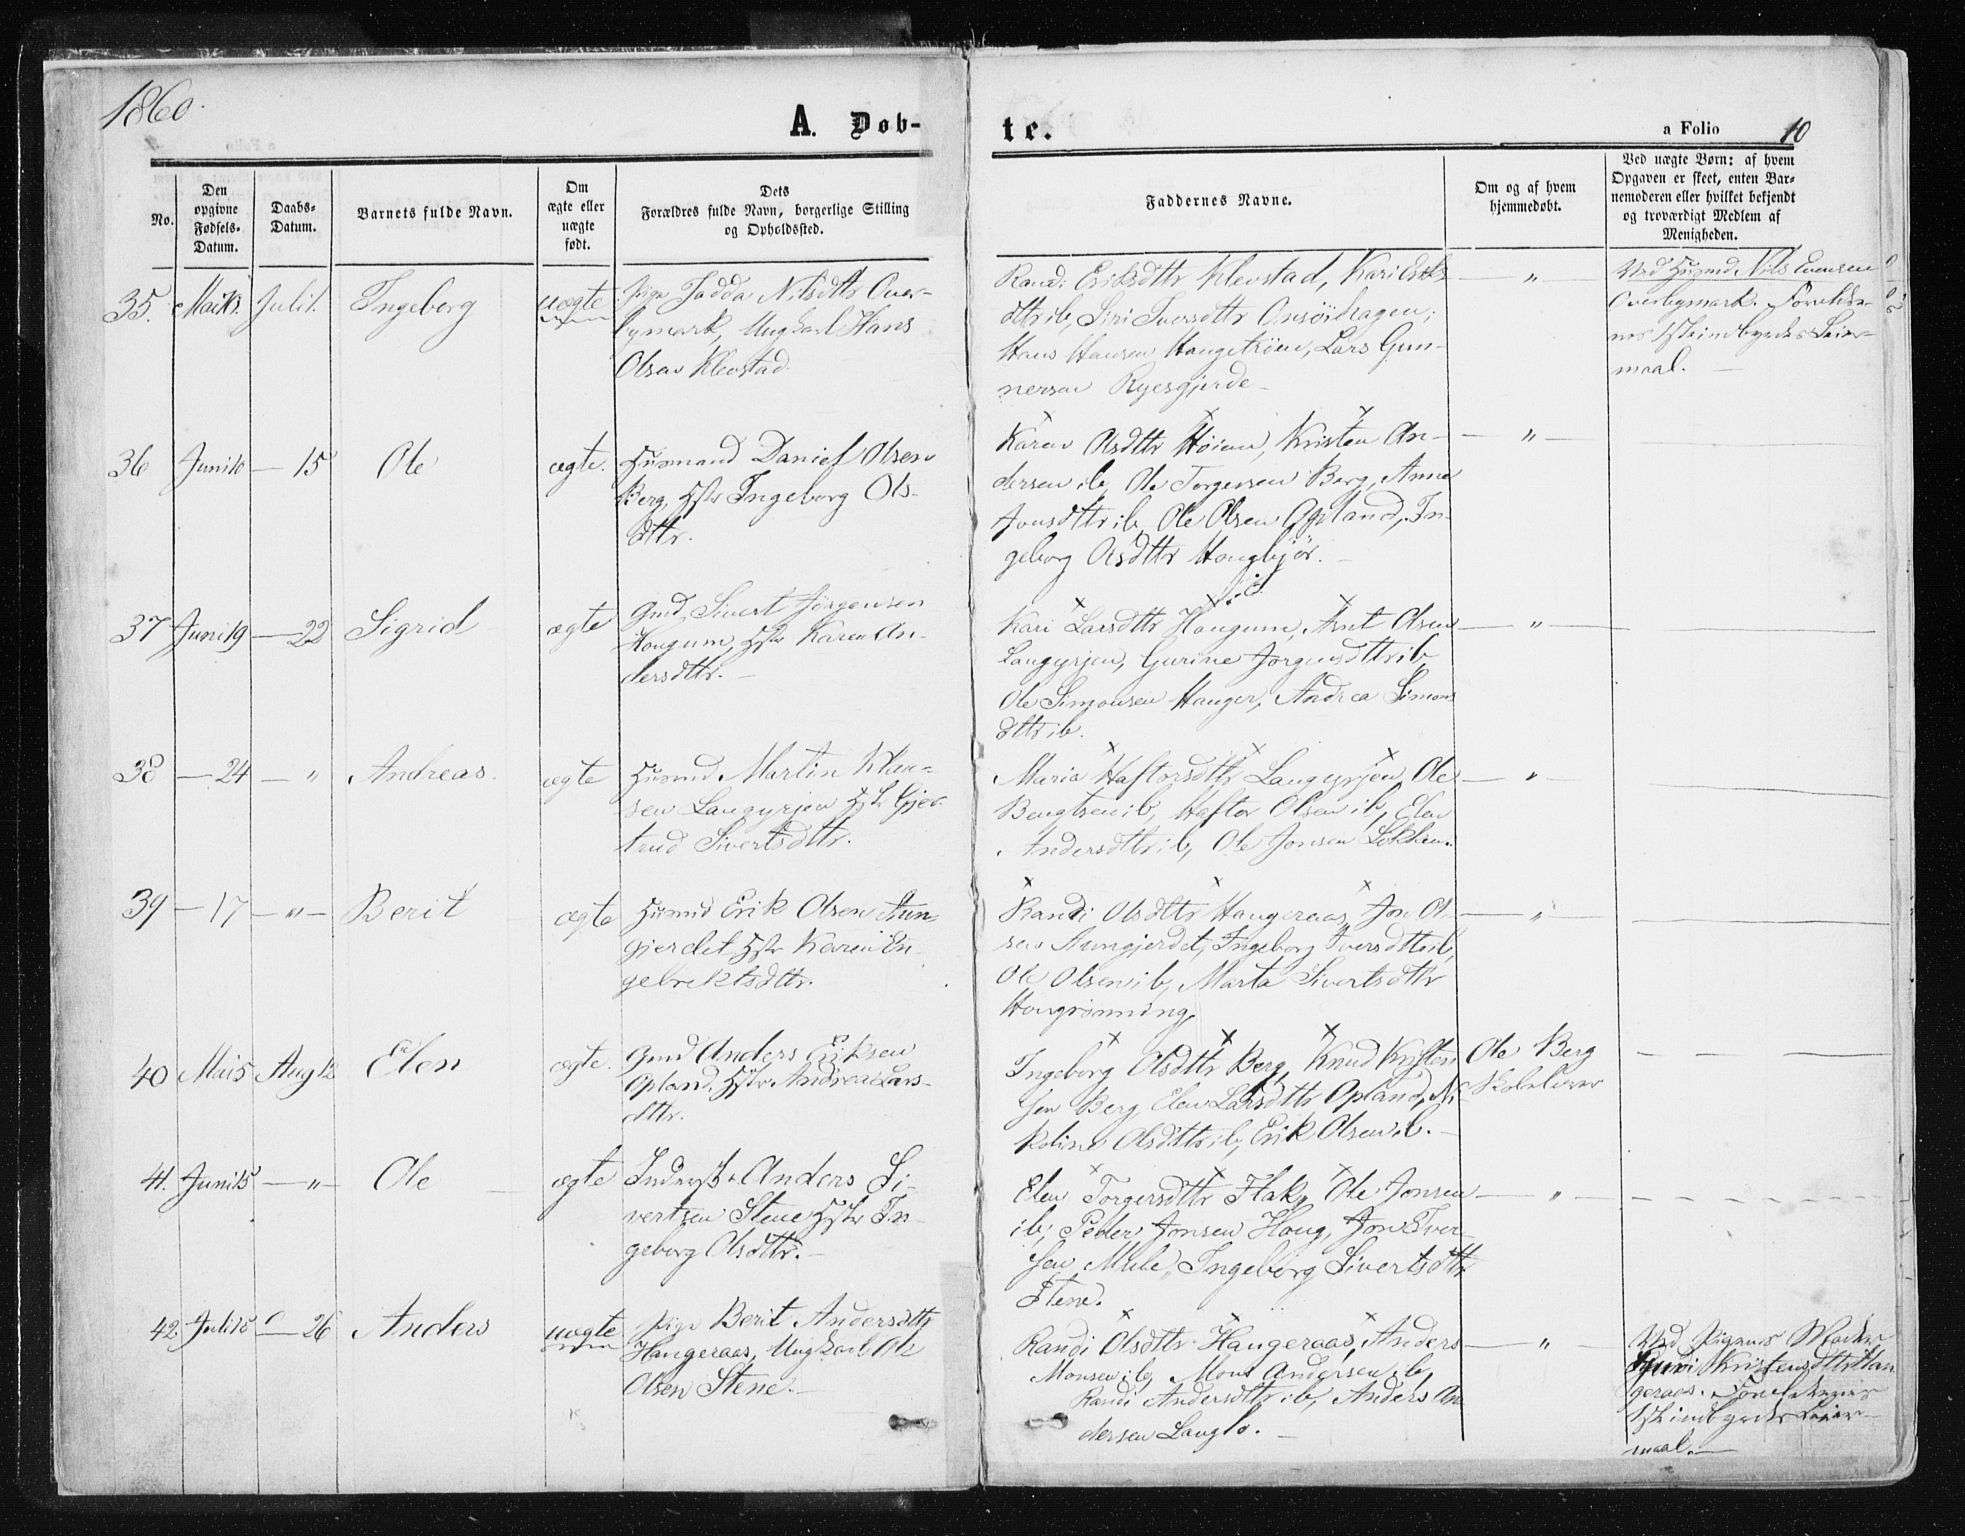 1860.
A. Døb-
te.
a Folio 10
No.
Den opgivne Fødsels-Datum.
Daabs-Datum.
Barnets fulde Navn.
Om ægte eller uægte født.
Dets Forældres fulde Navn, borgerlige Stilling og Opholdssted.
Faddernes Navne.
Om og af hvem hjemmedøbt.
Ved uægte Børn: af hvem Opgaven er skeet, enten Barnemoderen eller hvilket bekjendt og troværdigt Medlem af Menigheden.
35. Juli 1. Ingeborg uægte
Pige Nilsdttr Over-
bymark, Ungkarl Hans
Olsen Klevstad.
Eriksdttr Klevstad, Kari Eriks
dttr ib, Siri Iversdttr
Hans Hansen Haugetrøen, Lars Gun-
nersen Ryesgjerde -
— " —
Ved Husmd Nils Evensen
Overbymark. Foreldre-
nes 1ste indbyrdes Leier-
maal. —
36 Juni 10 — 15 Ole ægte.
Husmand Daniel Olsen
Berg, Hstr Ingeborg Ols-
dttr.
Karen Olsdttr Høiem, Kristen An-
dersen ib, Ole Torgersen Berg, Anne
Jonsdttr ib, Ole Olsen Opland, In-
geborg Olsdttr Haugbjør. —
— " —
37 Juni 19 — 22 Sigrid ægte
Gmd Sivert Jørgensen
Haugum, Hstr Karen An-
dersdttr. —
Kari Larsdttr Haugum, Arnt Olsen
Langørjen, Gurine Jørgensdttr ib,
Ole Simonsen Hauger, Andrea Simons
dttr ib.
— " —
38 — 24 — " Andreas. ægte
Husmd Martin
sen Langørjen Hstr Gjer-
trud Sivertsdttr.
Maria Haftorsdttr Langørjen, Ole
Bengtsen ib, Haftor Olsen ib, Elen
Andersdttr ib, Ole Jonsen Løkken.
— " —
39 — 17 — " — Berit ægte
Husmd Erik Olsen Aun-
gjerdet, Hstr Karen En-
gebrektsdttr.
Randi Olsdttr Haugeraas, Jon Ol-
sen Aungjerdet, Ingeborg Iversdttr ib,
Ole Olsen ib, Marta Sivertsdttr
Haugrønning
— " —
40 Mai 5 Aug 12 Elen ægte.
Gmd Anders Eriksen
Opland, Hstr Andrea Lars-
dttr.
Ingeborg Olsdttr Berg, Knud Kristen
sen Berg, Elen Larsdttr Opland, Ni-
koline Olsdttr ib, Erik Olsen ib. —
Ole Berg
Skolelærer
41. Juni 15 — " — Ole ægte
Inderst Anders Si-
vertsen Stene, Hstr In-
geborg Olsdttr. —
Elen Torgersdttr Flak, Ole Jonsen
ib, Peder Jonsen Haug, Jon Iver-
sen Mule, Ingeborg Sivertsdttr
Stene.
— " —
42 Juli 15 — 26 Anders uægte
Pige Berit Andersdttr
Haugeraas, Ungkarl Ole
Olsen Stene. —
Randi Olsdttr Haugeraas, Anders
Monsen ib, Mons Andersen ib,
Randi Andersdttr ib, Anders An
dersen Langlo. —
— " —
Ved Pigens Moder
Kristensdttr Hau
geraas. Foreldrenes
1ste indbyrdes Leier-
maal. —